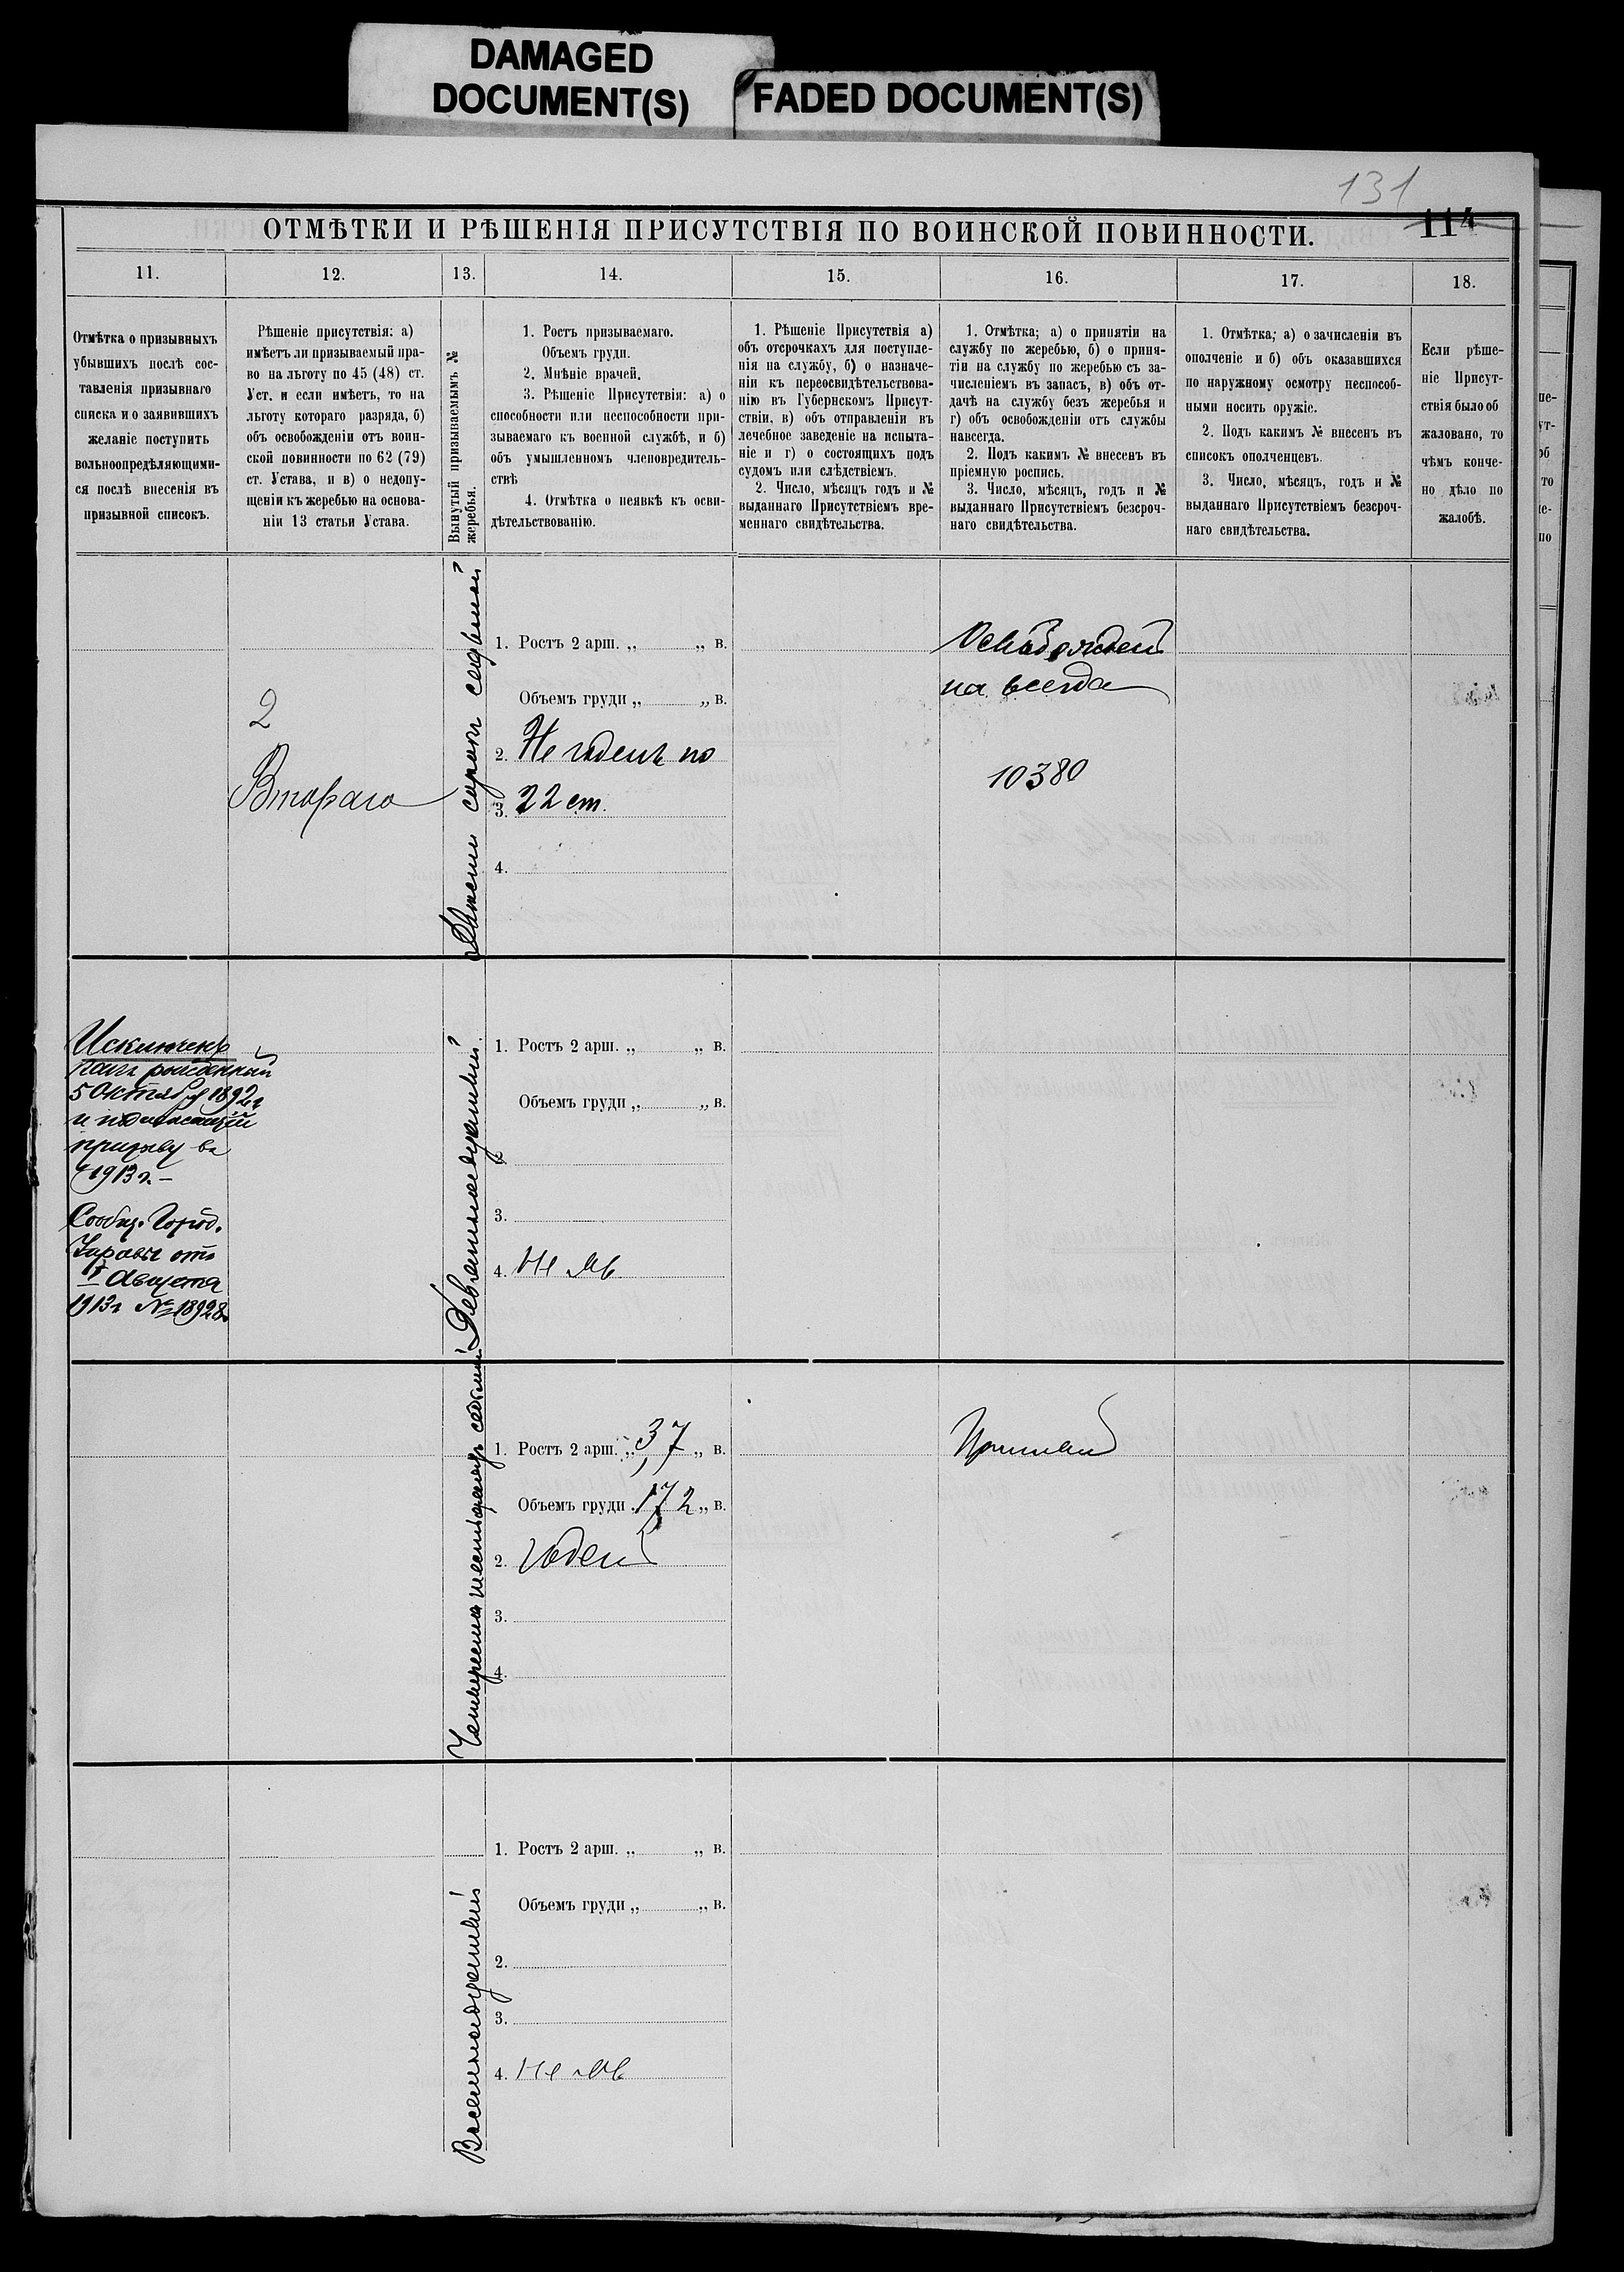 DAMAGED
DOCUMENT(S)
FADED DOCUMENT(S)
131
114
ОТМѢТКИ И РѢШЕНІЯ ПРИСУТСТВІЯ ПО ВОИНСКОЙ ПОВИННОСТИ.
11.
12.
13.
14.
15.
16.
17.
18.
Отмѣтка о призывныхъ
убывшихъ послѣ сос-
тавленія призывнаго
списка и о заявившихъ
желаніе поступить
вольноопредѣляющими-
ся послѣ внесенія въ
призывной списокъ.
Рѣшеніе присутствія: а)
имѣетъ ли призываемый пра-
во на льготу по 45 (48) ст.
Уст. и если имѣетъ, то на
льготу котораго разряда, б)
объ освобожденіи отъ воин-
ской повинности по 62 (79)
ст. Устава, и в) о недопу-
щеніи къ жеребью на основа-
ніи 13 статьи Устава.
Вынутый призываемымъ №
жеребья.
1. Ростъ призываемаго.
Объемъ груди.
2. Мнѣніе врачей.
3. Рѣшеніе Присутствія: а) о
способности или неспособности при-
зываемаго къ военной службѣ, и б)
объ умышленномъ членовредитель-
ствѣ
4. Отмѣтка о неявкѣ къ осви-
дѣтельствованію.
1. Рѣшеніе Присутствія а)
объ отсрочкахъ для поступле-
нія на службу, б) о назначе-
ніи къ переосвидѣтельствова-
нію въ Губернскомъ Присут-
ствіи, в) объ отправленіи въ
лечебное заведеніе на испыта-
ніе и г) о состоящихъ подъ
судомъ или слѣдствіемъ.
2. Число, мѣсяцъ годъ и №
выданнаго Присутствіемъ вре-
меннаго свидѣтельства.
1. Отмѣтка; а) о принятіи на
службу по жеребью, б) о приня-
тіи на службу по жеребью съ за-
численіемъ въ запасъ, в) объ от-
дачѣ на службу безъ жеребья и
г) объ освобожденіи отъ службы
навсегда.
2. Подъ какимъ № внесенъ въ
пріемную роспись.
3. Число, мѣсяцъ, годъ и №
выданнаго Присутствіемъ безсроч-
наго свидѣтельства.
1. Отмѣтка; а) о зачисленіи въ
ополченіе и б) объ оказавшихся
по наружному осмотру неспособ-
ными носить оружіе.
2. Подъ какимъ № внесенъ въ
списокъ ополченцевъ.
3. Число, мѣсяцъ, годъ и №
выданнаго Присутствіемъ безсроч-
наго свидѣтельства.
Если рѣше-
ніе Присут-
ствія было об
жаловано, то
чѣмъ конче-
но дѣло по
жалобѣ.
2
Втораго
Двѣсти сорокъ седьмой
1. Ростъ 2 арш. „ „ в.
Объемъ груди „ „ в.
2. Не годенъ по
3. 22 ст.
4.
Освобожденъ
на всегда
10380
Исключенъ
какъ рожденный
5 Октября 1892 г
и подлежащій
призыву въ
1913 г. –
Сообщ. Город.
Управы отъ
17 Августа
1913 г № 18928
Девятнадцатый
1. Ростъ 2 арш. „ „ в.
Объемъ груди „ „ в.
2.
3.
4. Не яв
Четыреста шестьдесятъ седьмой
1. Ростъ 2 арш. „ 3,7 „ в.
Объемъ груди 172 „ в.
2. годенъ
3.
4.
Принятъ
Восемнадцатый
1. Ростъ 2 арш. „ „ в.
Объемъ груди „ „ в.
2.
3.
4. Не яв